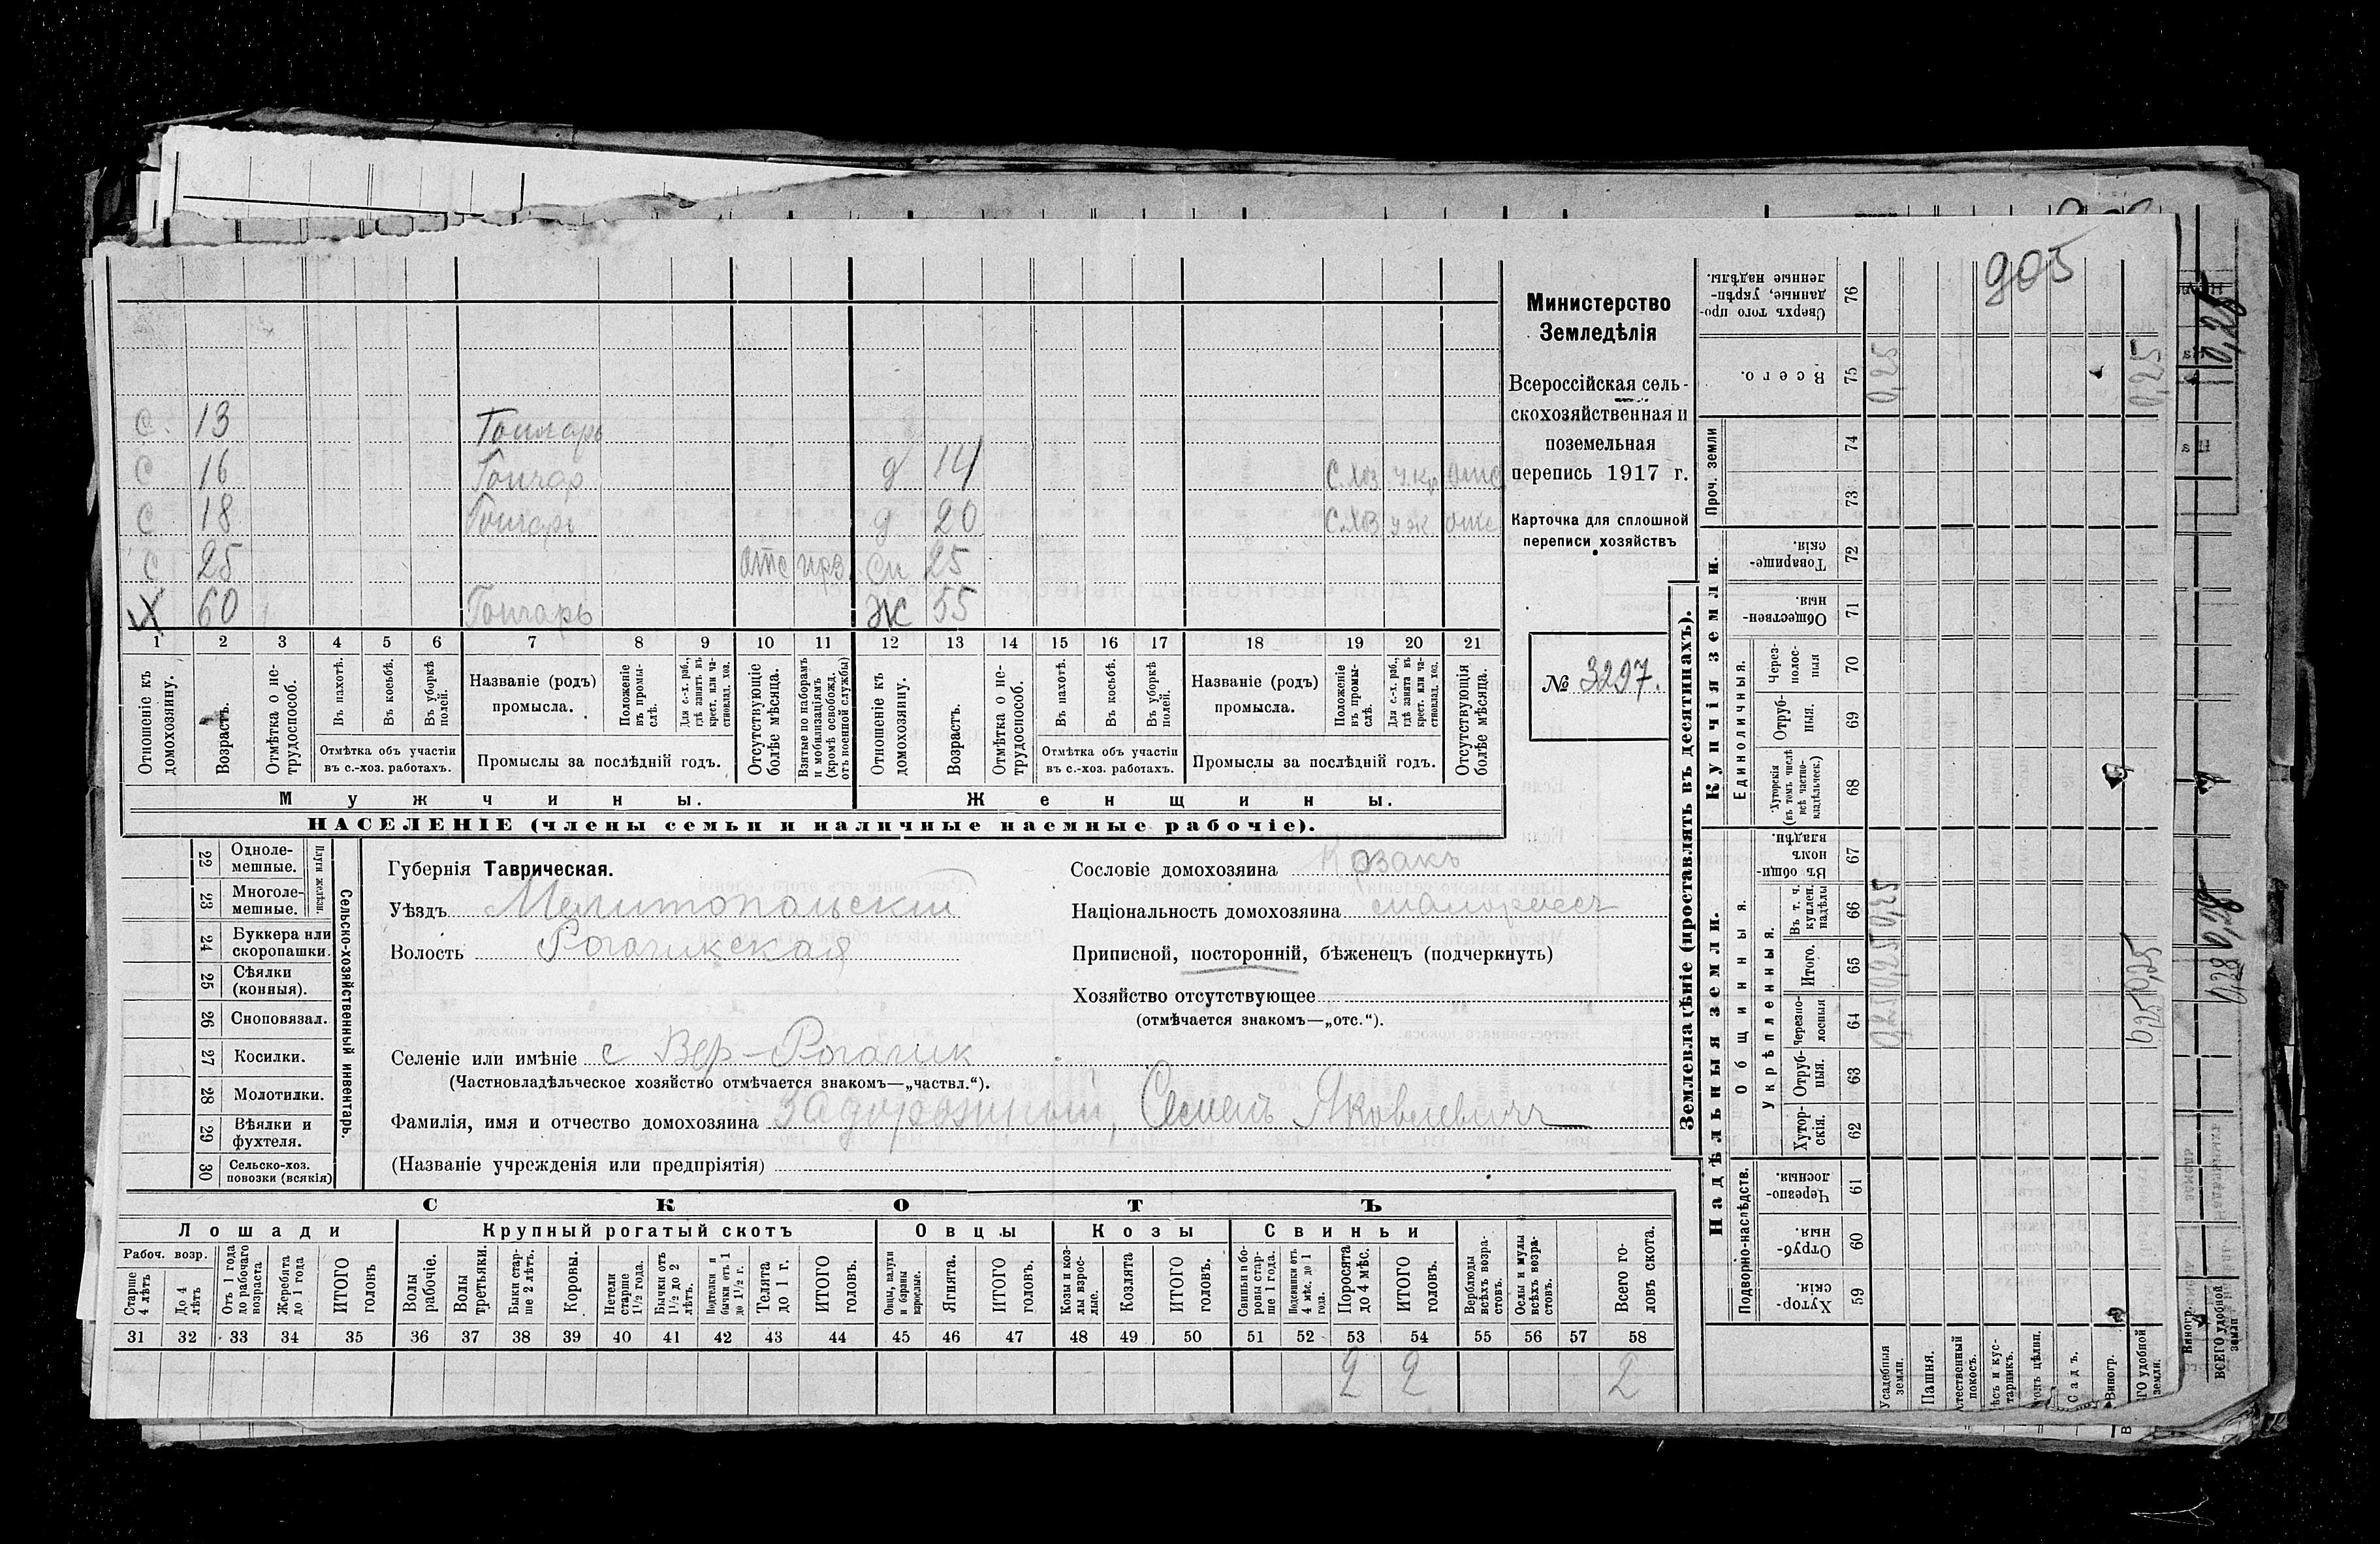 905
Министерство
Земледѣлія
Всероссійская сель-
скохозяйственная и
поземельная
перепись 1917 г.
Карточка для сплошной
переписи хозяйствъ
№ 3297.
С 13 Гончарь
С 16 Гончар д 14 С.хоз ч.кр отс
С 18 Гончарь д 20 С.хоз отс
С 25 отс Сн 25
Х 60 Гончарь Ж 55
1 2 3 4 5 6 7 8 9 10 11 12 13 14 15 16 17 18 19 20 21
Отношеніе къ домохозяину.
Возрастъ.
Отмѣтка о не-трудоспособ.
Въ пахотѣ.
Въ косьбѣ.
Въ уборкѣ полей.
Отмѣтка объ участіи
въ с.-хоз. работахъ.
Названіе (родъ)
промысла.
Положеніе въ промы-слѣ.
Для с.-х. раб., гдѣ занятъ въ крест. или ча-стновлад. хоз.
Промыслы за послѣдній годъ.
Отсутствующіе болѣе мѣсяца.
Взятые по наборамъ и мобилизаціямъ (кромѣ освобожд. отъ военной службы)
Отношеніе къ домохозяину.
Возрастъ.
Отмѣтка о не-трудоспособ.
Въ пахотѣ.
Въ косьбѣ.
Въ уборкѣ полей.
Отмѣтка объ участіи
въ с.-хоз. работахъ.
Названіе (родъ)
промысла.
Положеніе въ промы-слѣ.
Для с.-х. раб., гдѣ занята въ крест. или ча-стновлад. хоз.
Промыслы за послѣдній годъ.
Отсутствующія болѣе мѣсяца.
Мужчины.
Женщины.
НАСЕЛЕНІЕ (члены семьи и наличные наемные рабочіе).
22 Одноле-мешные.
23 Многоле-мешные.
Плуги желѣзн.
24 Буккера или скоропашки.
25 Сѣялки (конныя).
26 Сноповязал.
27 Косилки.
28 Молотилки.
29 Вѣялки и фухтеля.
30 Сельско-хоз. повозки (всякія)
Сельско-хозяйственный инвентарь.
Губернія Таврическая.
Уѣздъ Мелитопольскій
Волость Рогачикская
Сословіе домохозяина Козакъ
Національность домохозяина малороссъ
Приписной, посторонній, бѣженецъ (подчеркнуть)
Хозяйство отсутствующее
(отмѣчается знакомъ—„отс.“).
Селеніе или имѣніе с Вер-Рогачик
(Частновладѣльческое хозяйство отмѣчается знакомъ—„частвл.“).
Фамилія, имя и отчество домохозяина Задорожный, Семенъ Яковлевичъ
(Названіе учрежденія или предпріятія)
СКОТЪ
Лошади
Крупный рогатый скотъ
Овцы
Козы
Свиньи
Рабоч. возр.
Старше 4 лѣтъ
До 4 лѣтъ
Отъ 1 года до рабочаго возраста
Жеребята до 1 года
ИТОГО головъ
Волы рабочіе.
Волы третьяки.
Быки стар-ше 2 лѣтъ.
Коровы.
Нетели старше 1½ года.
Бычки отъ 1½ до 2 лѣтъ.
Подтелки и бычки отъ 1 до 1½ г.
Телята до 1 г.
ИТОГО головъ.
Овцы, валухи и бараны взрослые.
Ягнята.
ИТОГО головъ.
Козы и коз-лы взрос-лые.
Козлята
ИТОГО головъ.
Свиньи и бо-ровы стар-ше 1 года.
Подсвинки отъ 4 мѣс. до 1 года.
Поросята до 4 мѣс.
ИТОГО головъ.
Верблюды всѣхъ возра-стовъ.
Ослы и мулы всѣхъ возра-стовъ.
Всего го-ловъ скота.
31 32 33 34 35 36 37 38 39 40 41 42 43 44 45 46 47 48 49 50 51 52 53 54 55 56 57 58
2 2 2
Землевладѣніе (проставлять въ десятинахъ).
Надѣльныя земли.
Купчія земли.
Проч. земли
Подворно-наслѣдств.
Общинныя.
Укрѣпленныя.
Единоличныя.
Сверхъ того про-данные, укрѣп-ленные надѣлы. 76
Всего. 75 0,25 0,25
74
73
Товарище-скія. 72
Обществен-ныя. 71
Через-полос-ныя 70
Отруб-ныя. 69
Хуторскія (въ томъ числѣ всѣ частно-владѣльческ.) 68
Въ общи-номъ владѣн. 67
Въ т. ч. куплен. надѣлы 66 0,25
Итого. 65 0,25 0,25
Черезпо-лосныя 64 0,25 0,25
Отруб-ныя. 63
Хутор-скія. 62
Черезпо-лосныя. 61
Отруб-ныя. 60
Хутор-скія. 59
Усадебныя земли.
Пашня.
Виногр.
Садъ.
ГО удобной земли.
Виногр.
ВСЕГО удобной земли
0,28
0,28